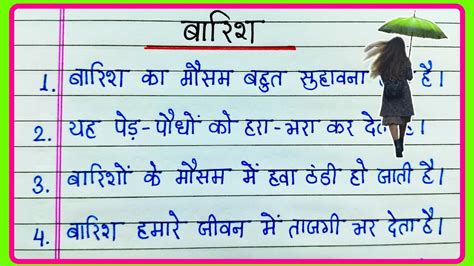 बारिश
1. बारिश का मौसम बहुत सुहावना है।
2. यह पेड़-पौधों को हरा-भरा कर देता है।
3. बारिशों के मौसम में हवा ठंडी हो जाती है।
4. बारिश हमारे जीवन में ताजगी भर देता है।